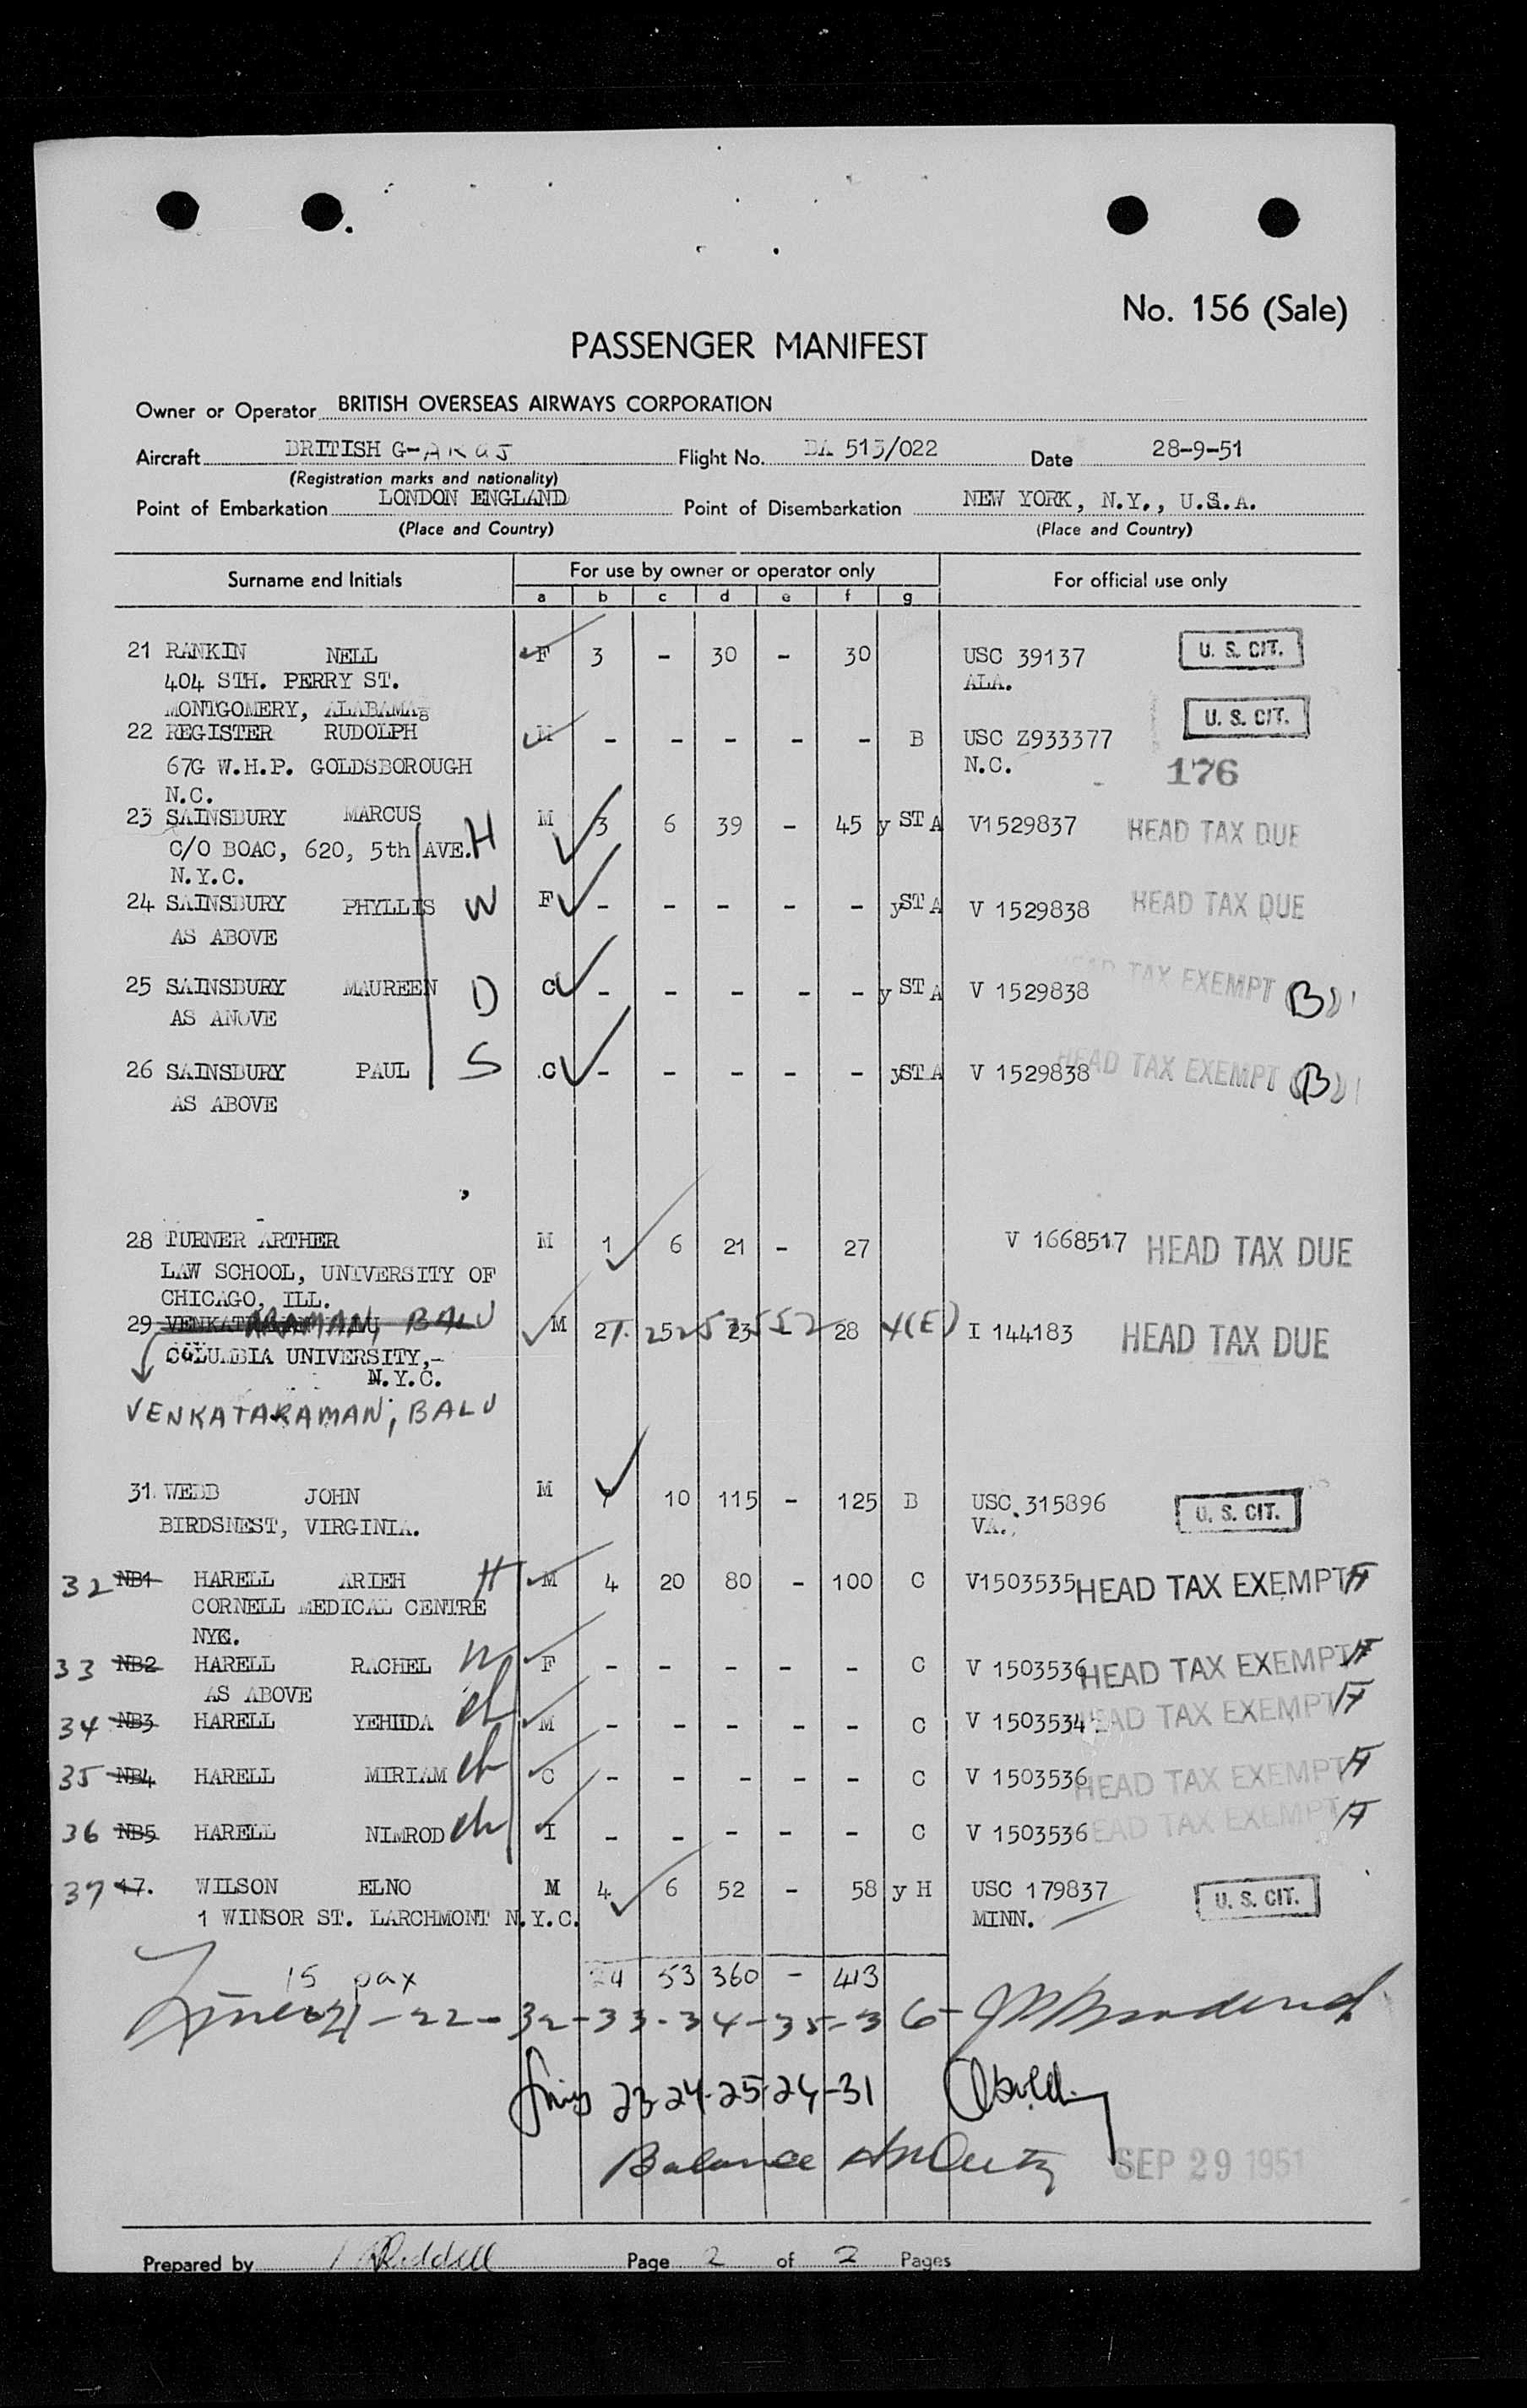 No. 156 (Sale)
PASSENGER MANIFEST
Owner or Operator BRITISH OVERSEAS AIRWAYS CORPORATION
Aircraft BRITISH G-AKGJ Flight No. BA 513/022 Date 28-9-51
(Registration marks and nationality)
Point of Embarkation LONDON ENGLAND Point of Disembarkation NEW YORK, N.Y., U.S.A.
(Place and Country) (Place and Country)
Surname and Initials For use by owner or operator only For official use only
a b c d e f g
21 RANKIN NELL F 3 - 30 - 30 USC 39137 U. S. CIT.
404 STH. PERRY ST. ALA.
MONTGOMERY, ALABAMA
22 REGISTER RUDOLPH M - - - - - B USC Z933377 U. S. CIT.
67G W.H.P. GOLDSBOROUGH N.C. 176
N.C.
23 SAINSBURY MARCUS H M 3 6 39 - 45 y ST A V1529837 HEAD TAX DUE
C/O BOAC, 620, 5th AVE.
N.Y.C.
24 SAINSBURY PHYLLIS W F - - - - - yST A V 1529838 HEAD TAX DUE
AS ABOVE
25 SAINSBURY MAUREEN D C - - - - - y ST A V 1529838 HEAD TAX EXEMPT (B)
AS ANOVE
26 SAINSBURY PAUL S C - - - - - yST A V 1529838 HEAD TAX EXEMPT (B)
AS ABOVE
28 TURNER ARTHER M 1 6 21 - 27 V 1668517 HEAD TAX DUE
LAW SCHOOL, UNIVERSITY OF
CHICAGO, ILL.
29 VENKATARAMAN, BALU M 2 5 23 28 4(E) I 144183 HEAD TAX DUE
COLUMBIA UNIVERSITY,-
N.Y.C.
VENKATARAMAN, BALU
31 WEBB JOHN M 10 115 - 125 B USC 315896 U. S. CIT.
BIRDSNEST, VIRGINIA. VA.
32 NB1 HARELL ARIEH H M 4 20 80 - 100 C V1503535 HEAD TAX EXEMPT H
CORNELL MEDICAL CENTRE
NYC.
33 NB2 HARELL RACHEL W F - - - - - C V 1503536 HEAD TAX EXEMPT H
AS ABOVE
34 NB3 HARELL YEHUDA ch M - - - - - C V 1503534 HEAD TAX EXEMPT H
35 NB4 HARELL MIRIAM ch C - - - - - C V 1503536 HEAD TAX EXEMPT H
36 NB5 HARELL NIMROD ch I - - - - - C V 1503536 HEAD TAX EXEMPT H
37 17. WILSON ELNO M 4 6 52 - 58 y H USC 179837 U. S. CIT.
1 WINSOR ST. LARCHMONT N.Y.C. MINN.
15 pax 24 53 360 - 413
Lines 21-22-32-33-34-35-36-
Lines 23-24-25-26-31
Balance
SEP 29 1951
Prepared by Riddell Page 2 of 2 Pages